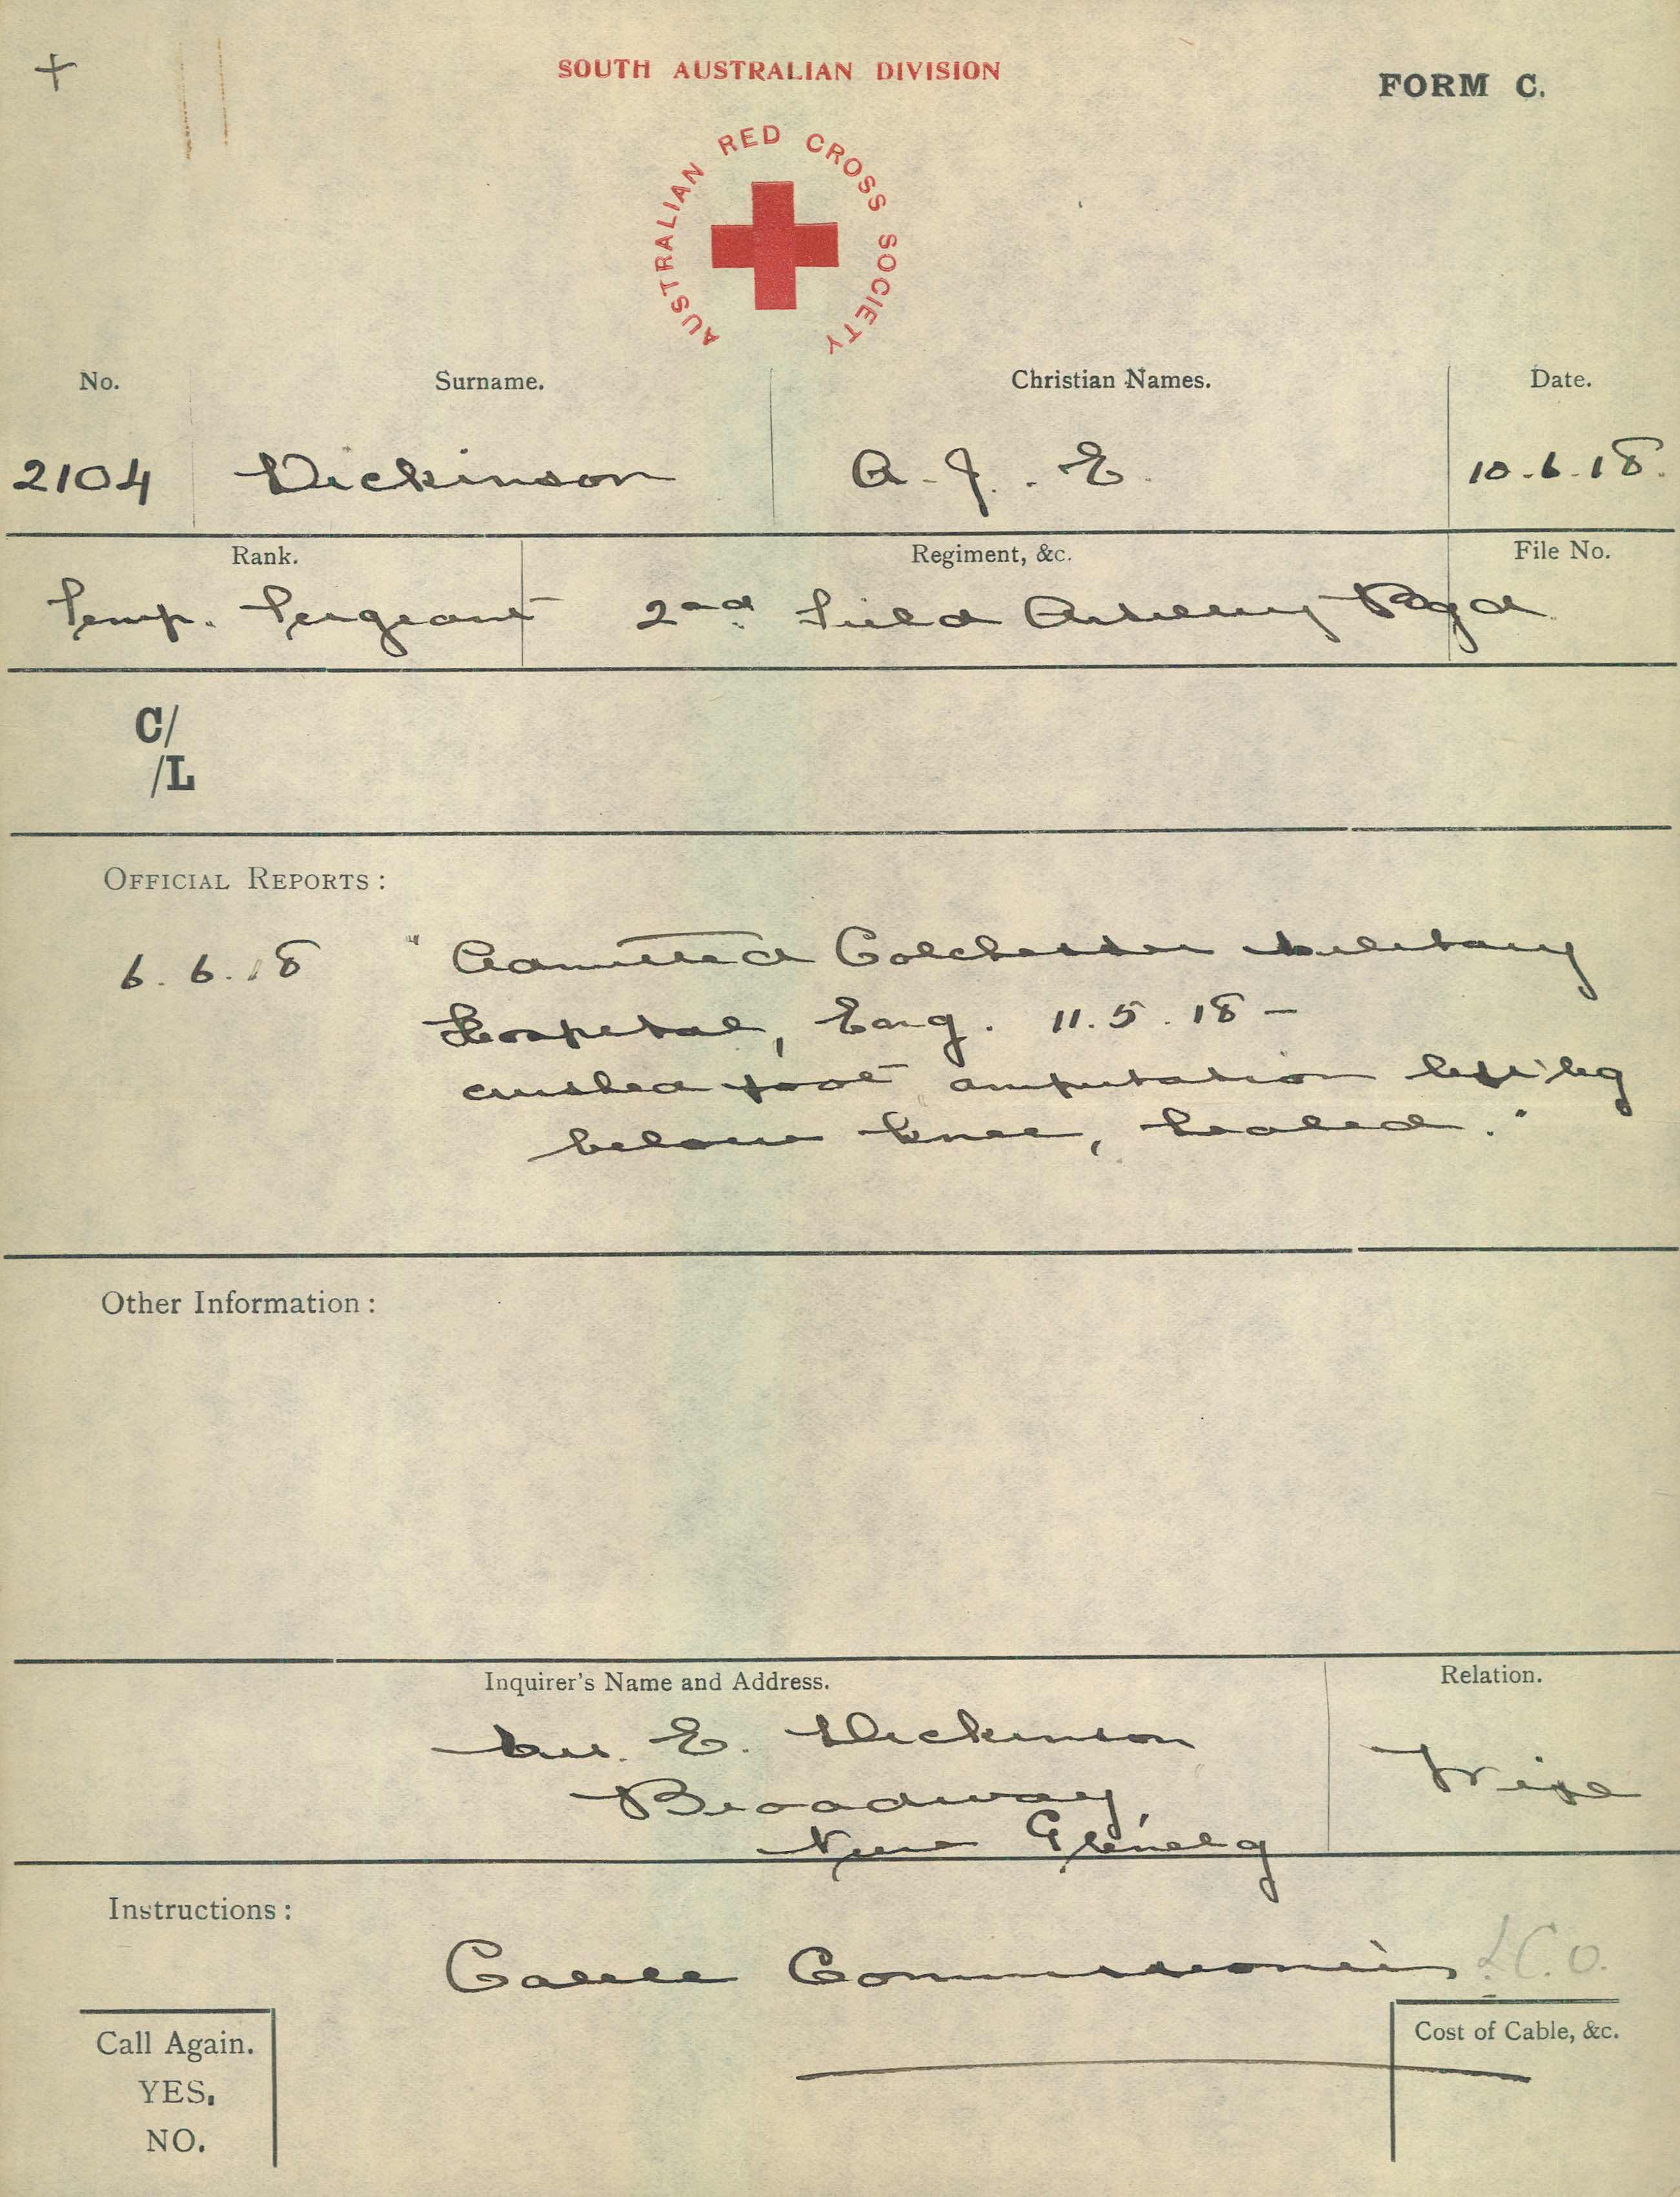 +
SOUTH AUSTRALIAN DIVISION
FORM C.
AUSTRALIAN RED CROSS SOCIETY
No. Surname. Christian Names. Date.
2104 Dickinson A. J. E. 10.6.18.
Rank. Regiment, &c. File No.
Temp. Sergeant 2nd. Field Artillery Bgd
C/
/L
OFFICIAL REPORTS:
6.6.18 "Admitted Colchester Military
Hospital, Eng. 11.5.18 -
crushed foot amputation left leg
below knee, healed."
Other Information:
Inquirer's Name and Address. Relation.
Mrs. E. Dickinson
Broadway, Wife
New Glenelg
Instructions:
Cable Commissioners L.C.O.
Call Again.
YES.
NO.
Cost of Cable, &c.